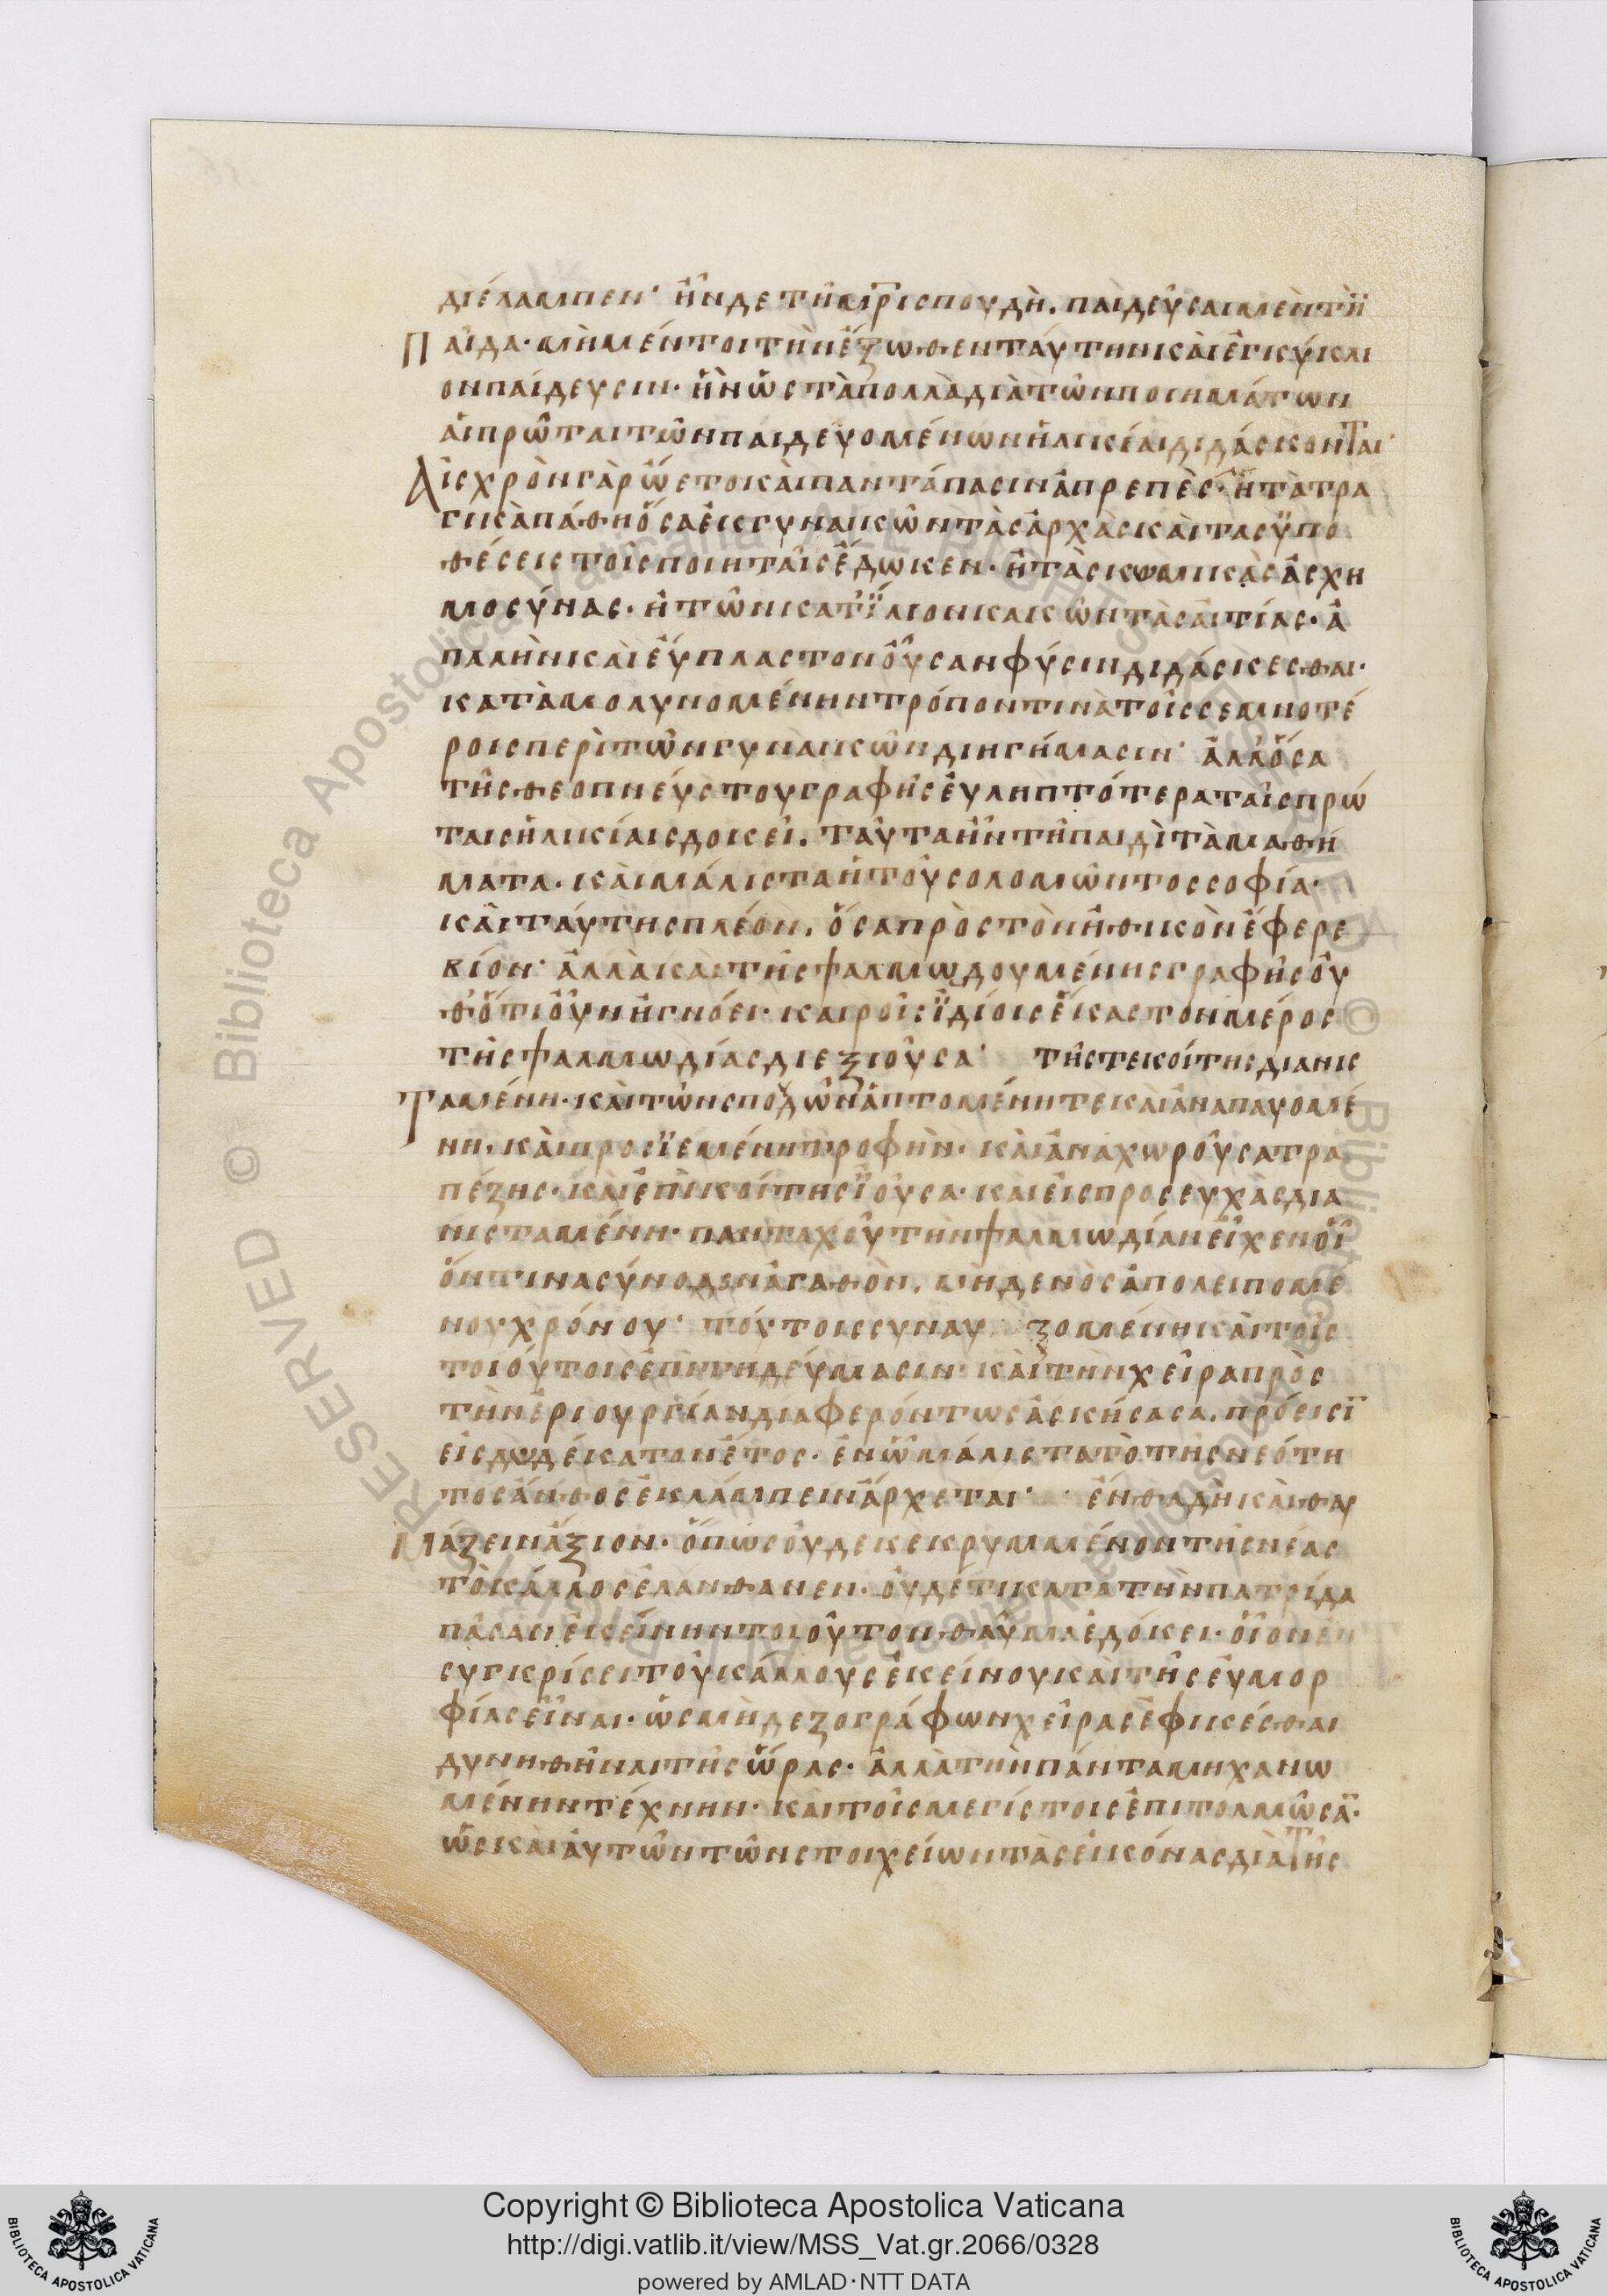 διέλαμπεν· ἦν δὲ τῆ μρὶ σπουδὴ. παιδεῦσαι μὲν τὴν
παῖδα· μὴ μέντοι τὴν ἔξωθεν ταύτην καὶ ἐγκύκλι
ον παίδευσιν· ἣν ὡς τὰ πολλὰ διὰ τῶν ποιημάτων
αἱ πρῶται τῶν παιδευομένων ἡλικίαι διδάσκονται·
Αἰσχρὸν γὰρ ὤετο καὶ παντάπασιν ἀπρεπὲς· ἢ τὰ τρα
γικὰ πάθη ὅσα ἐκ γυναικῶν τὰς ἀρχὰς καὶ τὰς ὑπο
θέσεις τοῖς ποιηταῖς ἔδωκεν· ἢ τὰς κωμικὰς ἀσχη
μοσύνας· ἢ τῶν κατ ἴλιον κακῶν τὰς αἰτίας· ἁ
παλὴν καὶ εὔπλαστον οὖσαν φύσιν διδάσκεσθαι·
καταμολυνομένην τρόπον τινὰ τοῖς σεμνοτέ
ροις περὶ τῶν γυναικῶν διηγήμασιν· ἀλλ ὅσα
τῆς θεοπνεύστου γραφῆς εὐληπτότερα ταῖς πρώ
ταις ἡλικίαις δοκεῖ. ταῦτα ἦν τῆ παιδὶ τὰ μαθή
ματα· καὶ μάλιστα ἡ τοῦ σολομῶντος σοφία·
καὶ ταύτης πλέον. ὅσα πρὸς τὸν ἠθικὸν ἔφερε
βίον· ἀλλὰ καὶ τῆς ψαλμωδουμένης γραφῆς οὐ
θ ὅτι οὖν ἠγνόει· καιροῖς ἰδίοις ἕκαστον μέρος
τῆς ψαλμωδίας διεξιοῦσα· τῆς τε κοίτης διανισ
ταμένη· καὶ τῶν σπουδῶν ἁπτομένη τε καὶ ἀναπαυομέ
νη. καὶ προσιεμένη τροφὴν· καὶ ἀναχωροῦσα τρα
πέζης· καὶ ἐπὶ κοίτης ἰοῦσα· καὶ εἰς προσευχὰς δια
νισταμένη· πανταχοῦ τὴν ψαλμωδίαν εἶχεν οἷ
όν τινα σύνοδον ἀγαθὸν. μηδενὸς ἀπολειπομέ
νου χρόνου· τούτοις συναυξομένη καὶ τοῖς
τοιούτοις ἐπιτηδεύμασιν· καὶ τὴν χεῖρα πρὸς
τὴν ἐριουργίαν διαφερόντως ἀσκήσασα. πρόεισι
εἰς δωδέκατον ἔτος· ἐν ὧ μάλιστα τὸ τῆς νεότη
τος ἄνθος ἐκλάμπειν ἄρχεται· ἔνθα δὴ καὶ θαυ
μάζειν ἄξιον· ὅπως οὐδὲ κεκρυμμένον τῆς νέας
τὸ κάλλος ἐλάνθανεν· οὐδέ τι κατὰ τὴν πατρίδα
πᾶσαν ἐκείνην τοιοῦτον θαῦμα ἐδόκει· οἷον ἐν
συγκρίσει τοῦ κάλλους ἐκείνου καὶ τῆς εὐμορ
φίας εἶναι· ὡς μὴ δὲ ζογράφων χεῖρας ἐφικέσθαι
δυνηθῆναι τῆς ὥρας· ἀλλὰ τὴν πάντα μηχανω
μένην τέχνην· καὶ τοῖς μεγίστοις ἐπιτολμῶσα·
ὡς καὶ αὐτῶν τῶν στοιχείων τὰς εἰκόνας διὰ τῆς
Copyright © Biblioteca Apostolica Vaticana
http://digi.vatlib.it/view/MSS_Vat.gr.2066/0328
powered by AMLAD·NTT DATA